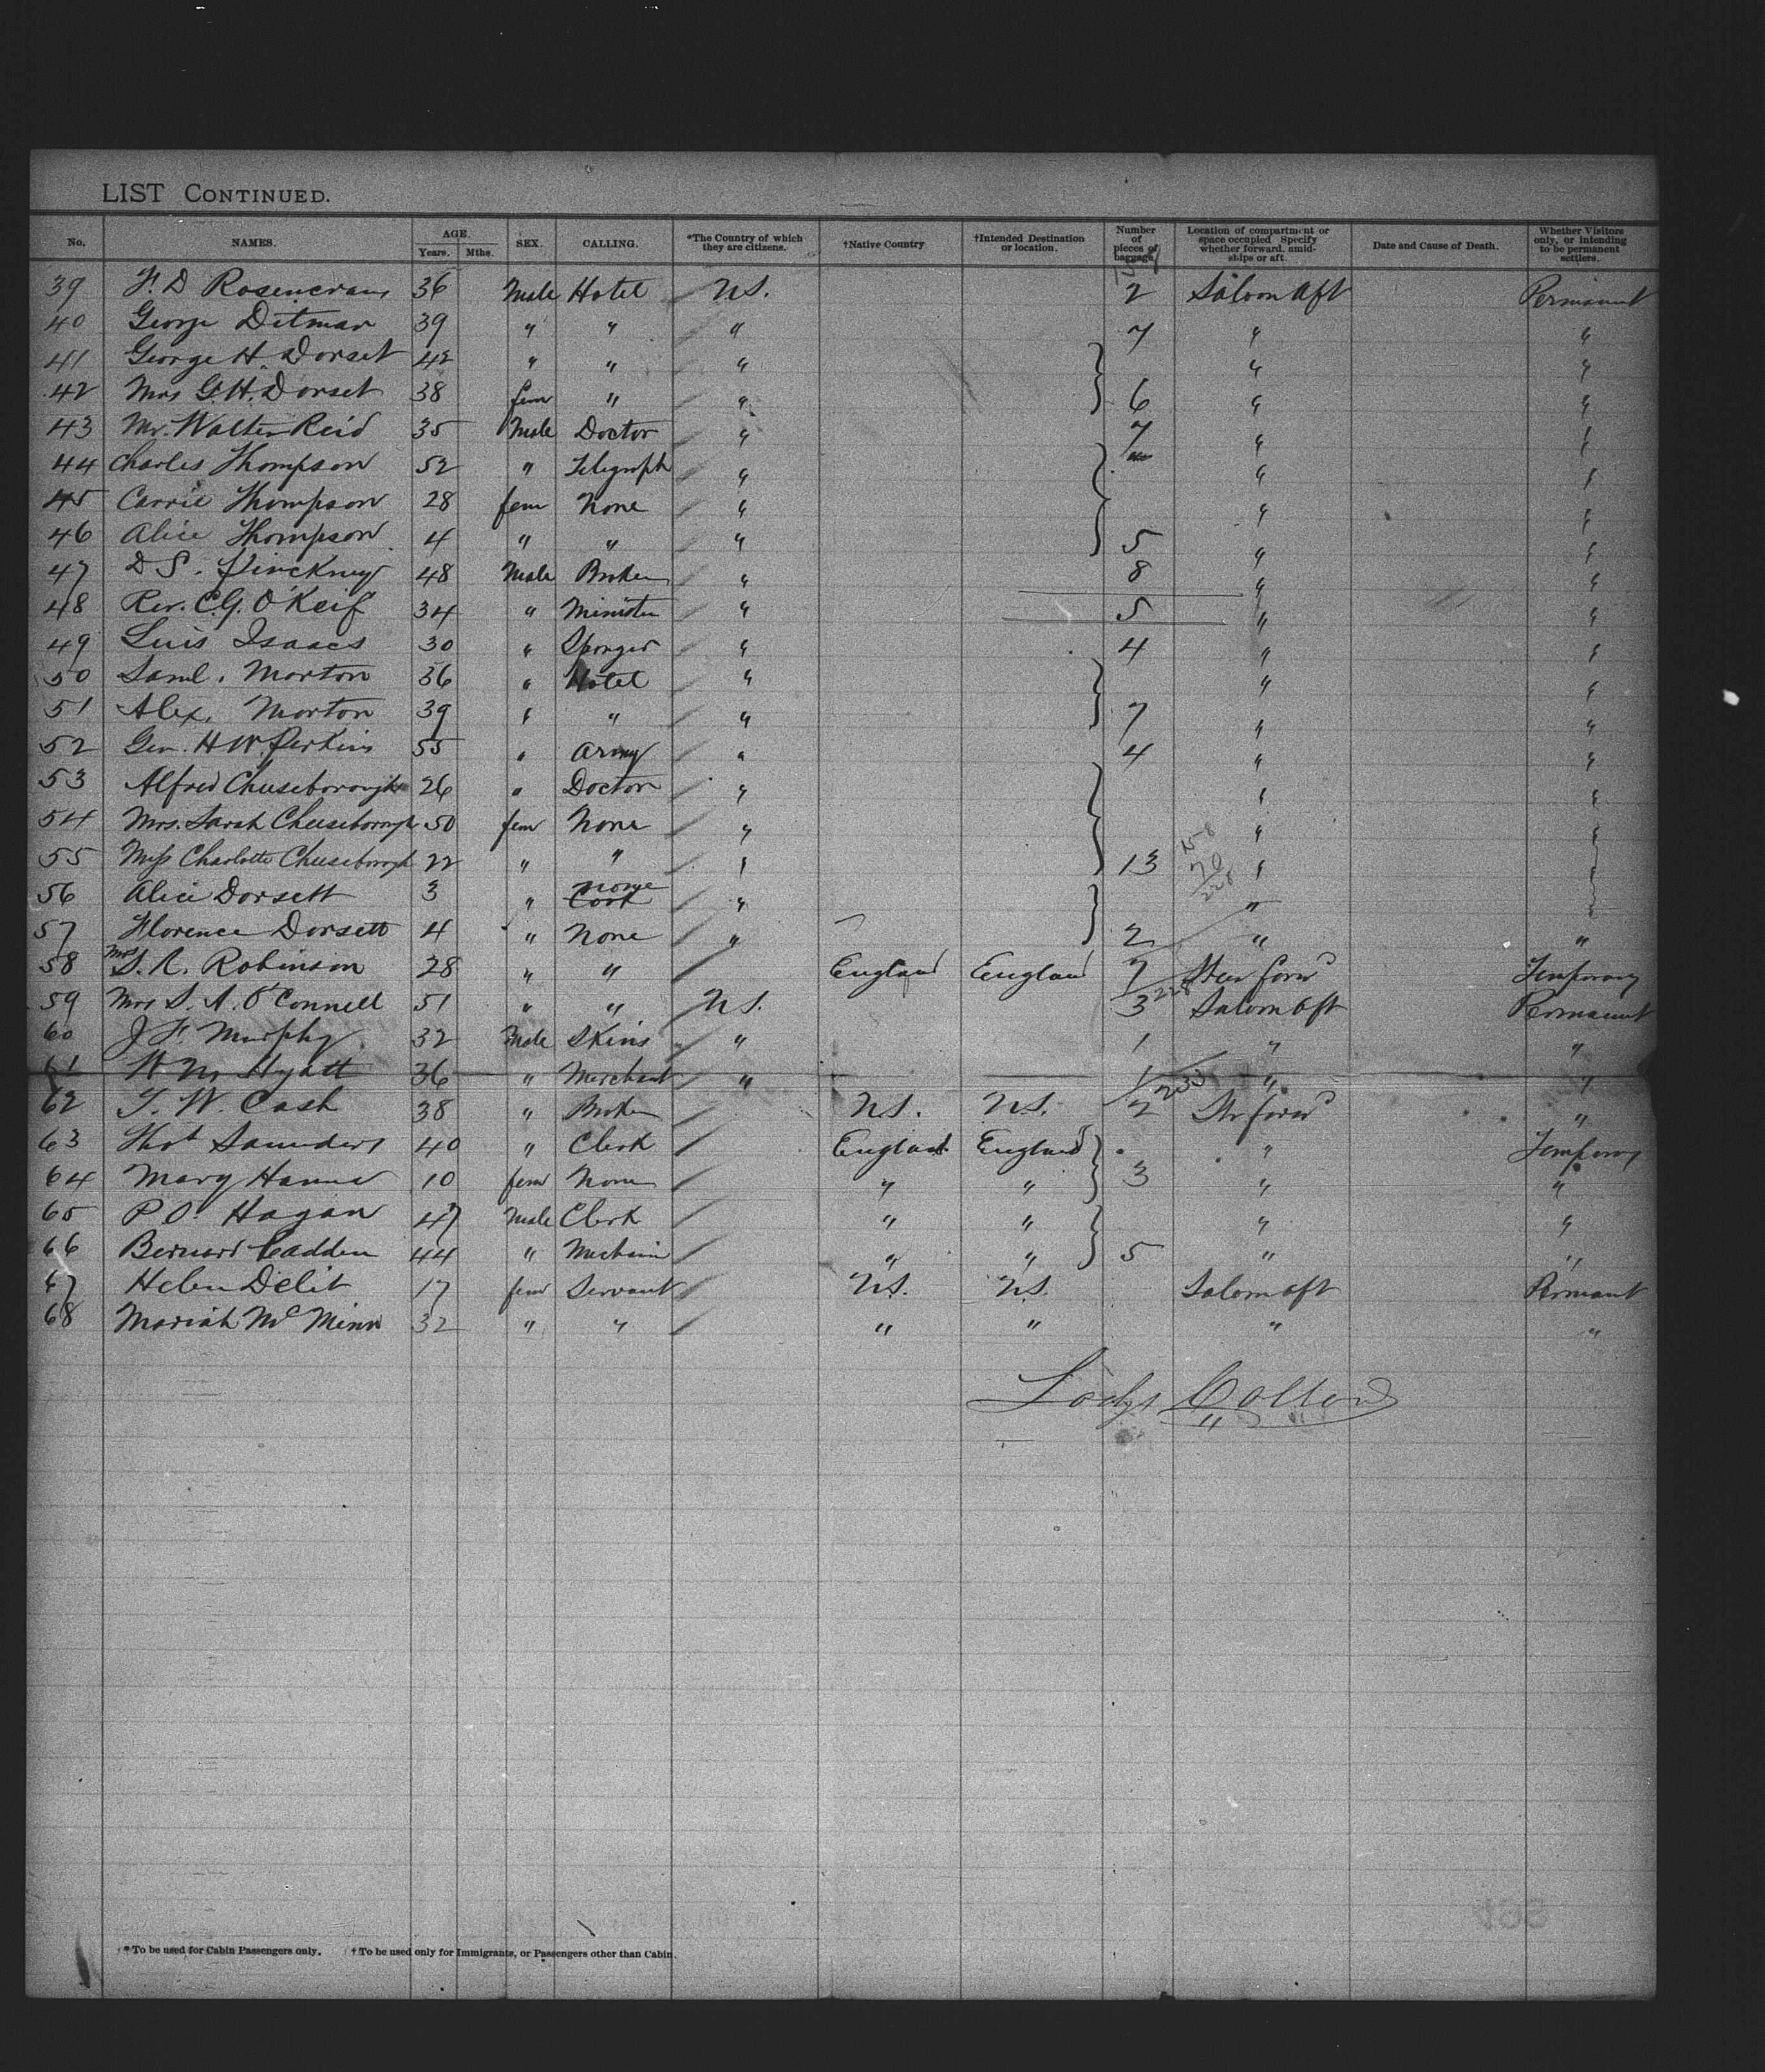 LIST CONTINUED.
No. NAMES. AGE. Years. Mths. SEX. CALLING. *The Country of which they are citizens. †Native Country †Intended Destination or location. Number of pieces of baggage Location of compartment or space occupied Specify whether forward, amidships or aft. Date and Cause of Death. Whether Visitors only, or intending to be permanent settlers.
39 F. D Rosencrans 36 Male Hotel U.S. 2 Saloon Aft Permanent
40 George Ditmar 39 " " " 7 " "
41 George H. Dorset 42 " " " " "
42 Mrs G. H. Dorset 38 fem " " 6 " "
43 Mr. Walter Reid 35 Male Doctor " 7 " "
44 Charles Thompson 52 " Telegraph " " "
45 Carrie Thompson 28 fem None " " "
46 Alice Thompson 4 " " " 5 " "
47 D S. Pinckney 48 Male Broker " 8 " "
48 Rev. C. G. O'Keif 34 " Minister " 5 " "
49 Luis Isaacs 30 " Sponger " 4 " "
50 Saml. Morton 36 " Hotel " " "
51 Alex. Morton 39 " " " 7 " "
52 Gen. H W. Perkins 55 " Army " 4 " "
53 Alfred Cheeseborough 26 " Doctor " " "
54 Mrs. Sarah Cheeseborough 50 fem None " " "
55 Miss Charlotte Cheeseborough 22 " " " 13 " "
158
70
228
56 Alice Dorsett 3 " none Cook " " "
57 Florence Dorsett 4 " None " 2 " "
58 Mrs S. R. Robinson 28 " " England England 7 Steer forwd Temporary
59 Mrs S. A. O'Connell 51 " " U.S. 3 228 Saloon Aft Permanent
60 J F. Murphy 32 Male Skins " 1 " "
61 W M Hyatt 36 " Merchant " 1 233 " "
62 T. W. Cash 38 " Broker U.S. U.S. 2 Str forwd "
63 Thos Saunders 40 " Clerk England England " Temporary
64 Mary Hanna 10 fem None " " 3 " "
65 P. O. Hagan 47 Male Clerk " " " "
66 Bernard Cadden 44 " Mechanic " " 5 " "
67 Helen Delit 17 fem Servant U.S. U.S. Saloon Aft Permant
68 Mariah McMinn 32 " " " " " "
* To be used for Cabin Passengers only. † To be used only for Immigrants, or Passengers other than Cabin.